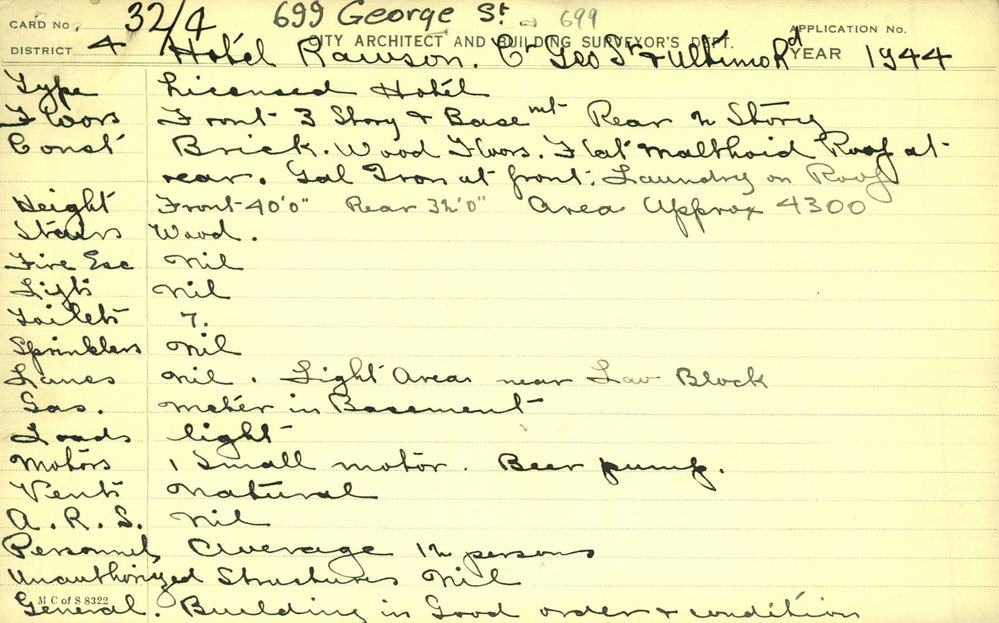 CARD No. 32/4 699 George St 699 APPLICATION No.
CITY ARCHITECT AND BUILDING SURVEYOR'S DEPT.
DISTRICT 4 Hotel Rawson. Cr Geo St & Ultimo Rd YEAR 1944
Type Licensed Hotel
Floors Front 3 Story & Basemnt Rear 2 Story
Const Brick. Wood Floors. Flat Malthoid Roof at
rear. Gal Iron at front. Laundry on Roof
Height Front 40'0" Rear 32'0" Area Approx 4300
Stairs Wood.
Fire Esc Nil
Lifts Nil
Toilets 7.
Sprinklers Nil
Lanes Nil. Light Area near Lav Block
Gas. Meter in Basement
Loads light
Motors 1 Small motor. Beer pump.
Vents Natural
A.R.S. Nil
Personnel Average 12 persons
Unauthorized Structures Nil
M C of S 8322
General. Building in Good order & condition